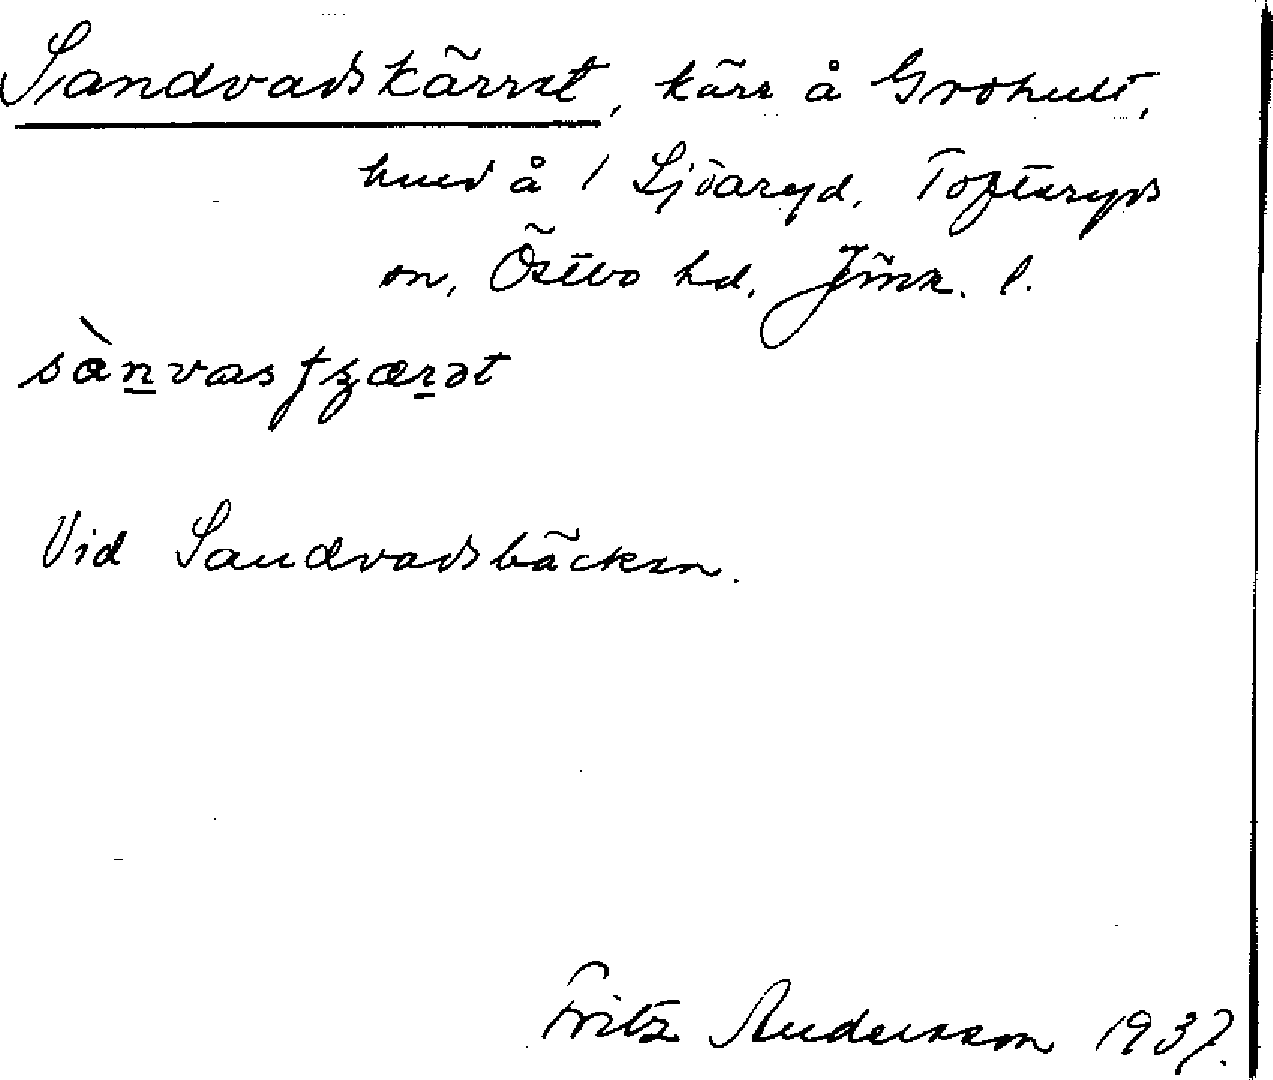 Sandvadskärret, kärr å Grohult,
hmd å 1 Sjöaryd, Tofteryds
sn, Östbo hd, Jönk. l.
sànvasfʒærət
Vid Sandvadsbäcken.
Fritz Andersson 1937.